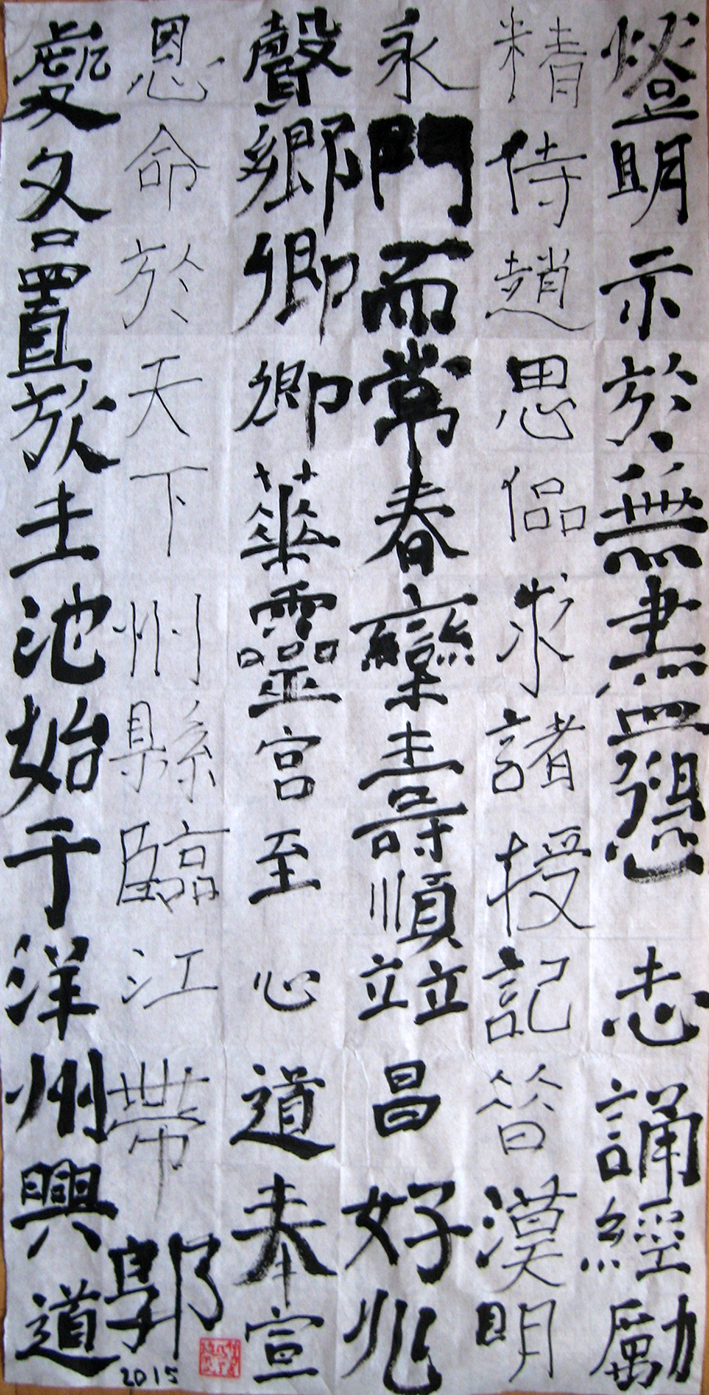 燈明示於無盡愆志誦經勵
精侍趙思侷求諸授記笤漢明
永門而常春欒士壽順竝昌好兆
聲鄉卿卿華靈宮至心道奉宣
恩命於天下州縣臨江帶郭
處久置放土池始于洋州興道
2015